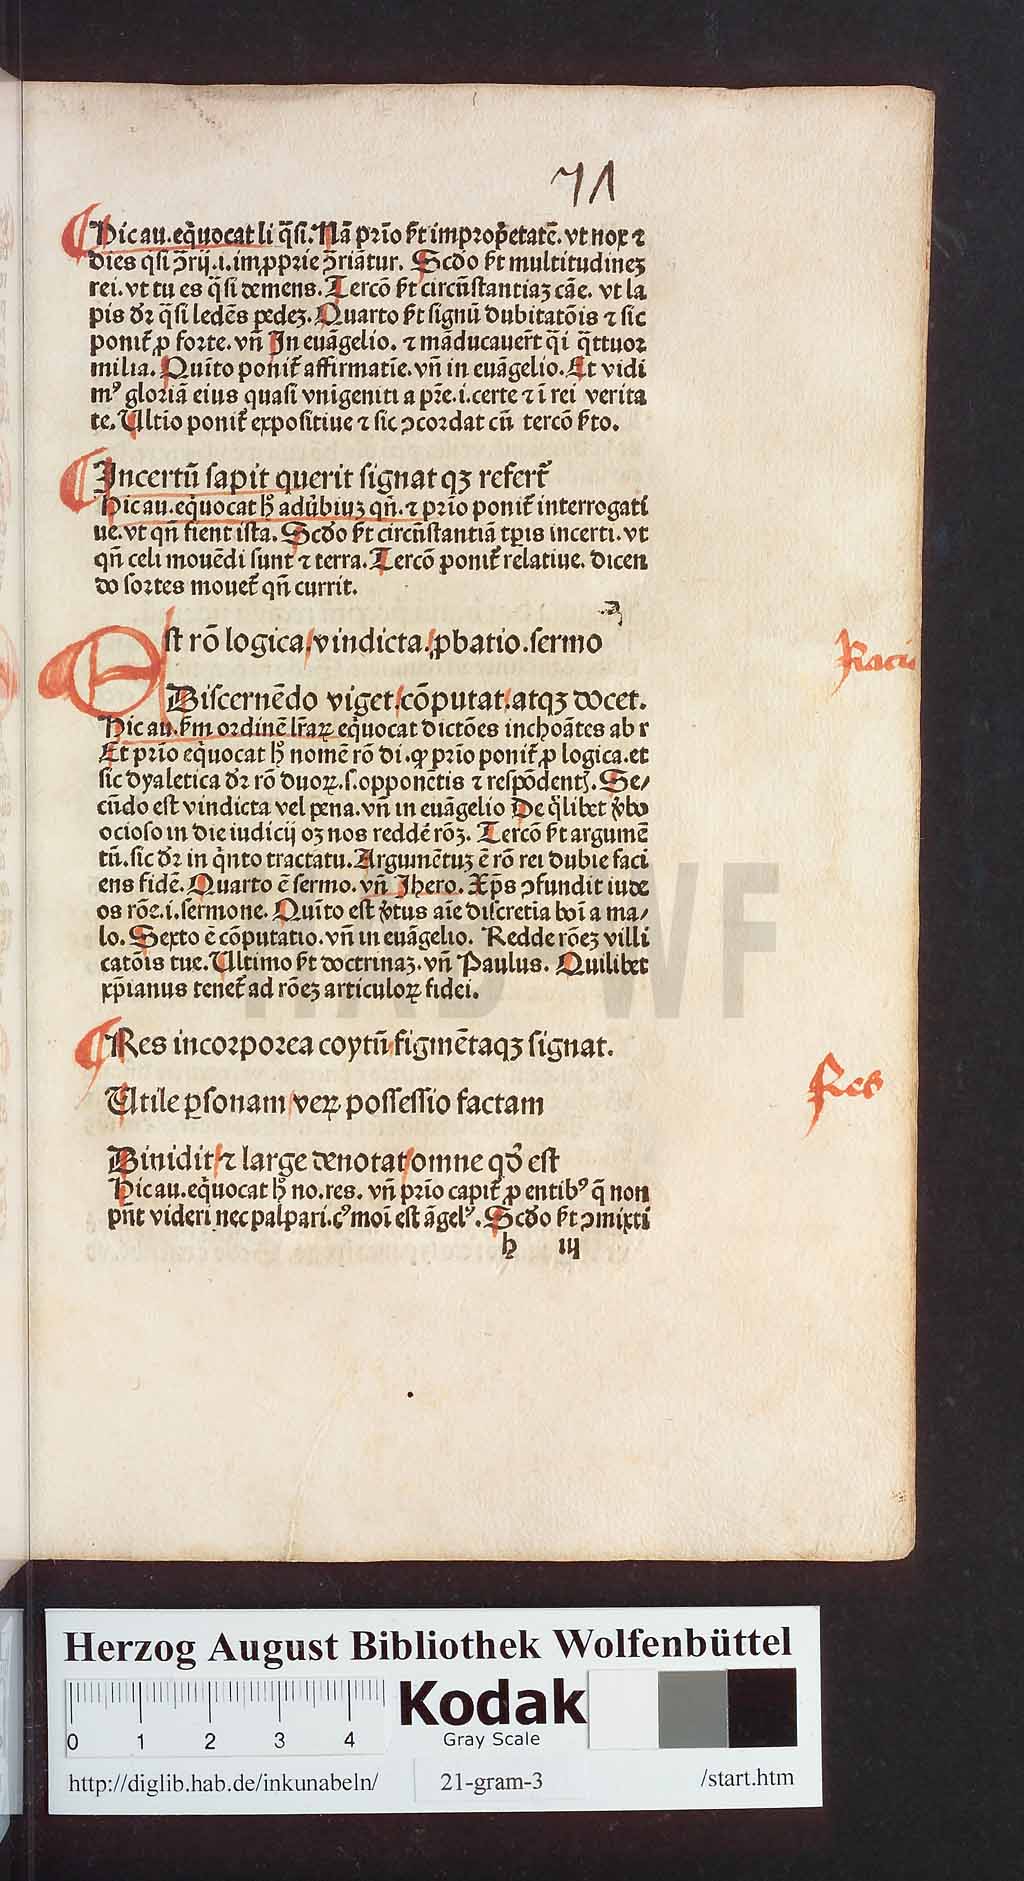 71
Hic au. eq̃uocat li q̃si. Nã prĩo ẜt impropr̃etatẽ. vt nox ⁊
dies q̃si ↄ̃rij. i. imꝓprie ↄ̃riãtur. Scdo ẜt multitudinez
rei. vt tu es q̃si demens. Tercõ ẜt circũstantiaʒ cãe. vt la
pis dr̃ q̃si ledẽs pedeʒ. Quarto ẜt signũ dubitatõis ⁊ sic
ponit̃ ꝓ forte. vñ In euãgelio. ⁊ mãducauer̃t q̃i q̃ttuor
milia. Quĩto ponit̃ affirmatiẽ. vñ in euãgelio. Et vidi
mꝰ gloriã eius quasi vnigeniti a pr̃e. i. certe ⁊ ĩ rei verita
te. Vltĩo ponit̃ expositiue ⁊ sic ↄcordat cũ tercõ ẜto.
Incertũ sapit querit signat qʒ refert̃
Hic au. eq̃uocat hͦ adũbiuʒ qñ. ⁊ prĩo ponit̃ interrogati
ue. vt qñ fient ista. Scdo ẜt circũstantiã tp̃is incerti. vt
qñ celi mouẽdi sunt ⁊ terra. Tercõ ponit̃ relatiue. dicen
do sortes mouet̃ qñ currit.
Est rõ logica / vindicta. / ꝓbatio. sermo
Discernẽdo viget / cõputat / atqʒ docet.
Hic au. ẜm ordinẽ lr̃aꝝ eq̃uocat dictões inchoãtes ab r
Et prĩo eq̃uocat hͦ nomẽ rõ di. ꝙ prĩo ponit̃ ꝓ logica. et
sic dyaletica dr̃ rõ duoꝝ. s. opponẽtis ⁊ respõdentꝭ. Se/
cũdo est vindicta vel pena. vñ in euãgelio De q̃libet ṽbo
ocioso in die iudicij oʒ nos redder̃ rõʒ. Tercõ ẜt argumẽ
tũ. sic dr̃ in q̃nto tractatu. Argumẽtuʒ ẽ rõ rei dubie faci
ens fidẽ. Quarto ẽ sermo. vñ Jhero. Xp̃s ↄfundit iude
os rõe. i. sermone. Quĩto est ṽtus aĩe discretĩa boĩ a ma/
lo. Sexto ẽ cõputatio. vñ in euãgelio. Redde rõeʒ villi
catõis tue. Ultimo ẜt doctrinaʒ. vñ Paulus. Quilibet
xp̃ianus tenet̃ ad rõeʒ articuloꝝ fidei.
Racio
Res incorporea coytũ / figmẽtaqʒ signat.
Vtile ꝑsonam / veꝝ possessio factam
Res
Diuidit / ⁊ large denotat / omne qd̃ est
Hic au. eq̃uocat hͦ no. res. vñ prĩo capit̃ ꝓ entibꝰ q̃ non
pñt videri nec palpari. cꝰ moĩ est ãgelꝰ. Scdo ẜt ↄmixti
h iij
HAB WF
Herzog August Bibliothek Wolfenbüttel
0 1 2 3 4
Kodak
Gray Scale
http://diglib.hab.de/inkunabeln/ 21-gram-3 /start.htm